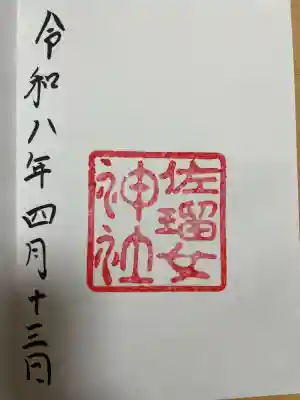 佐瑠女
神社
令和八年四月十三日